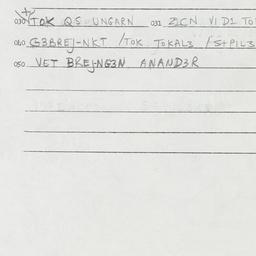 030 TOK QS UNGARN 031 ZICN VI D1 TO
040 G3BREJ-NKT / TOK TOKAL3 / S+PIL3
050 VET BREJ-NG3N ANAND3R